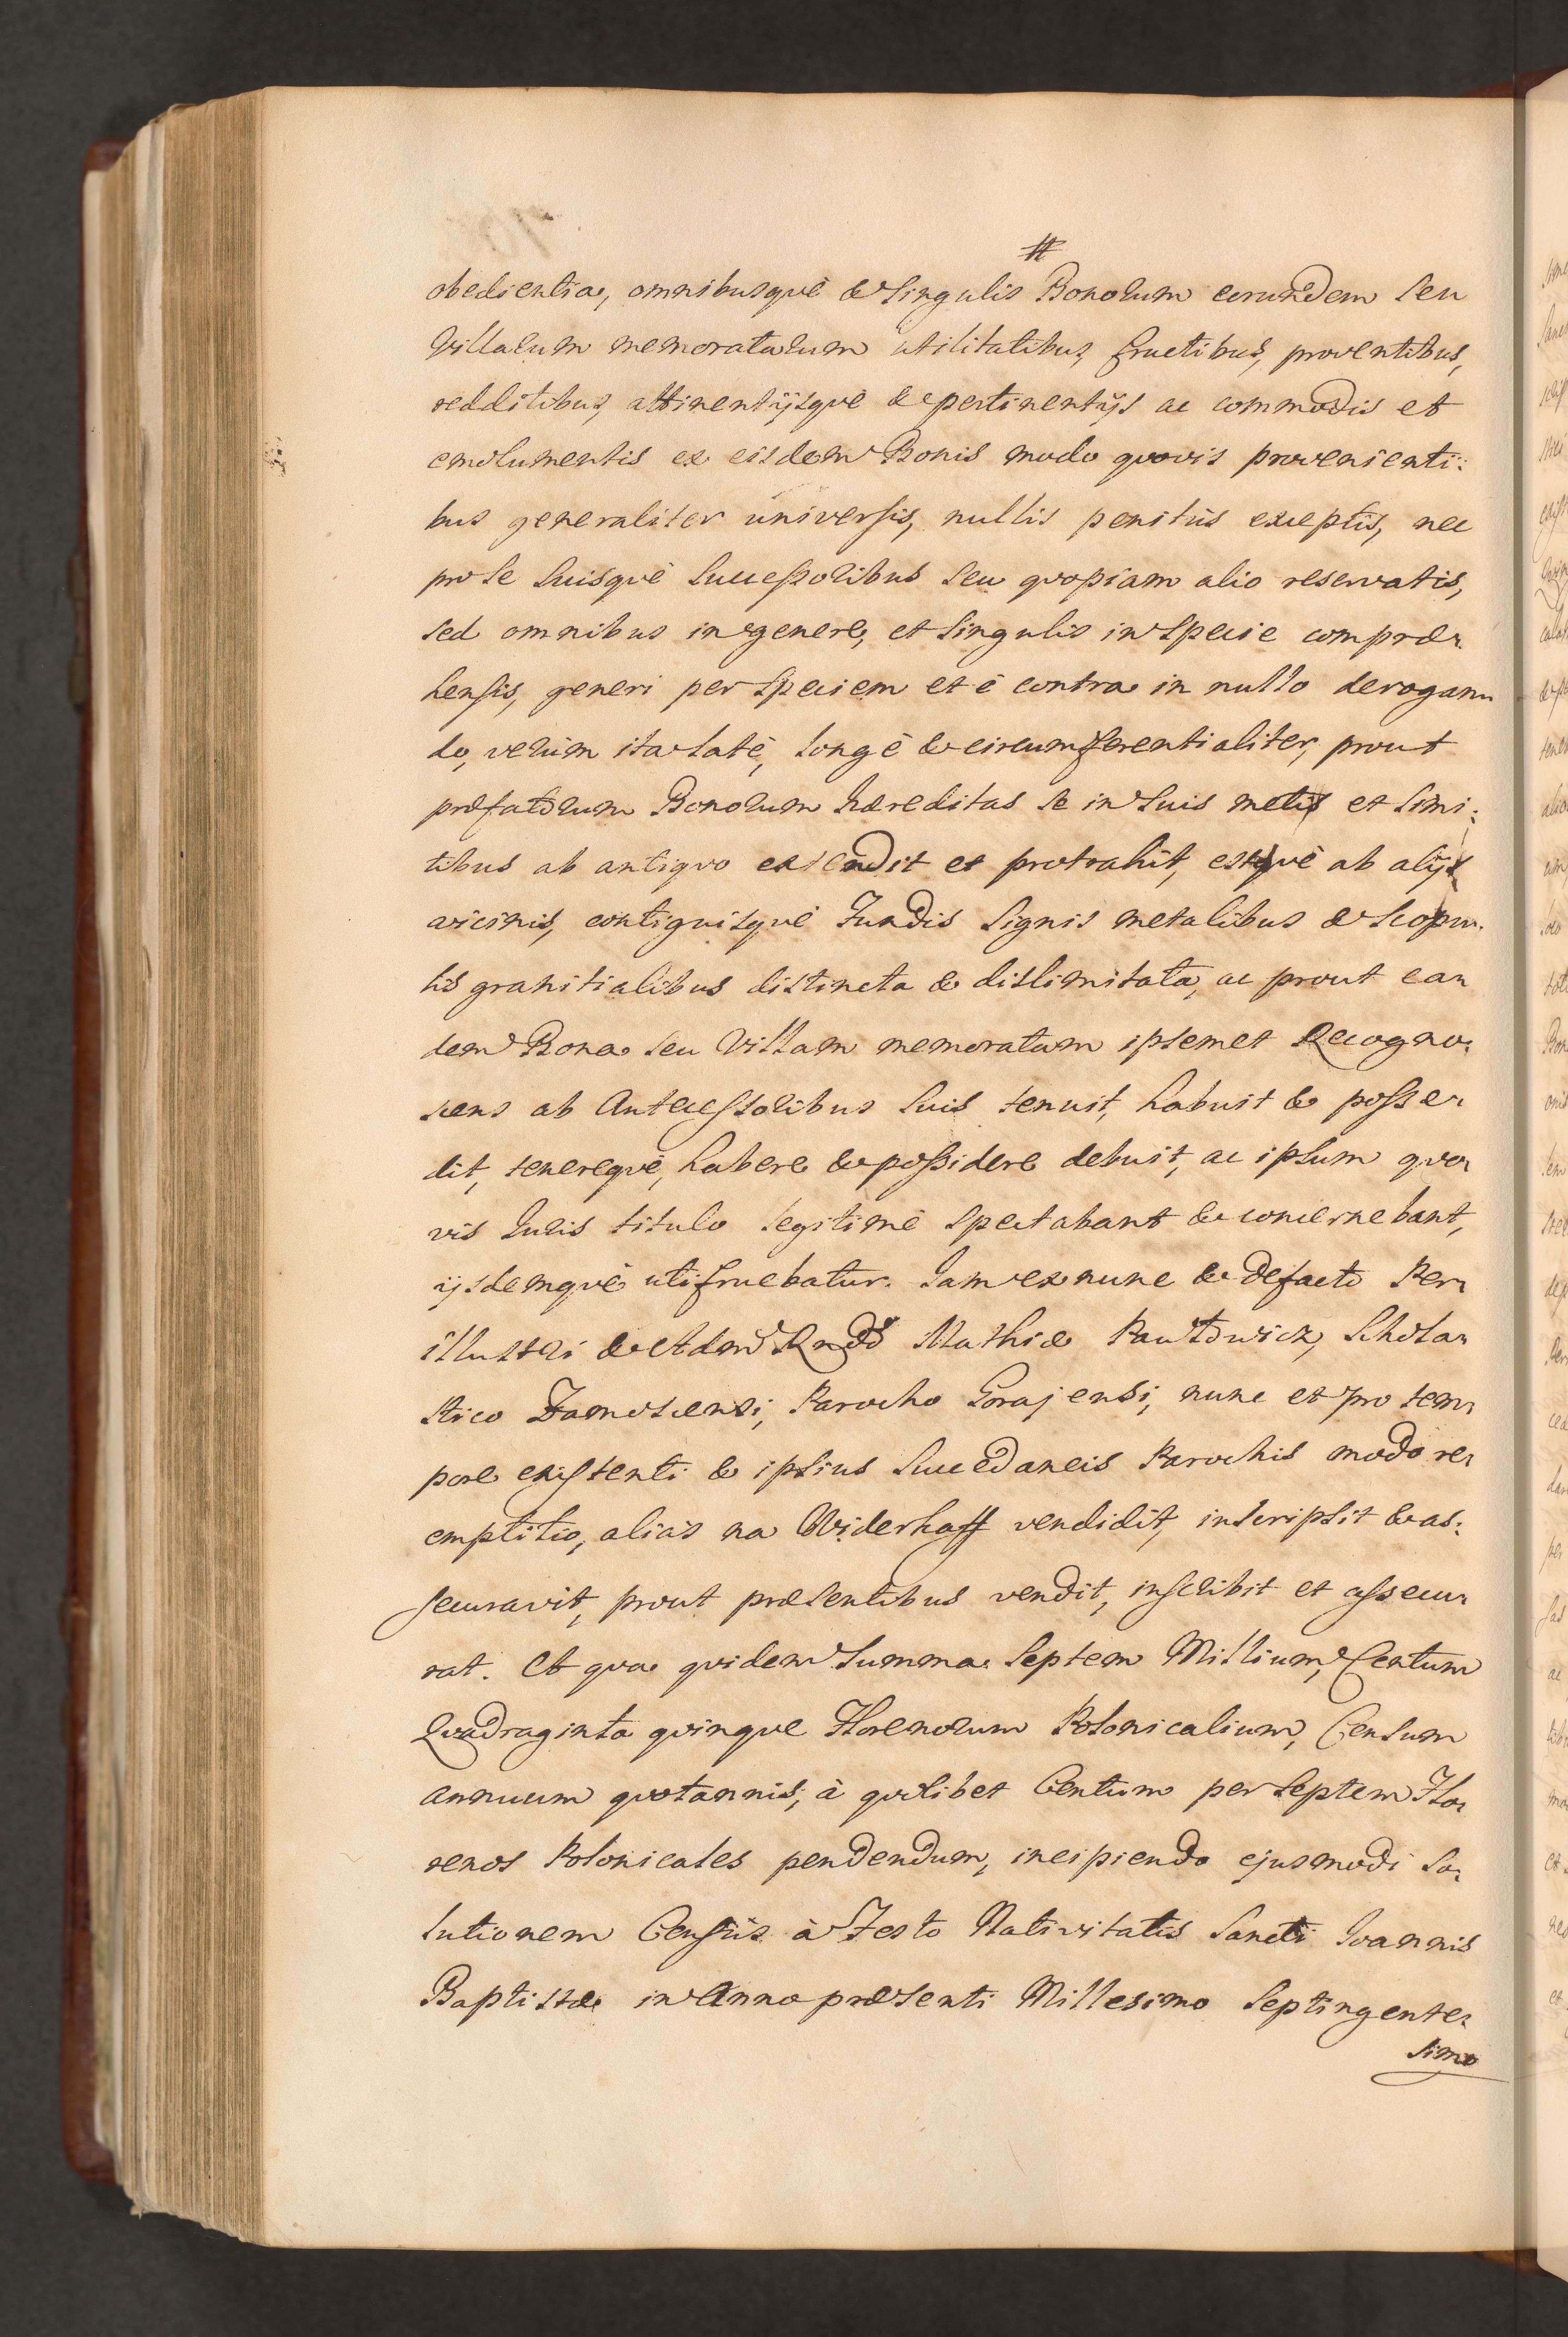 #
obedientia, omnibusquè & singulis Bonorum eorundem seu
Villarum memoratarum utilitatibus, fructibus, proventibus,
redditibus, attinentijsquè & pertinentijs ac commodis et
emolumentis ex eisdem Bonis modo quovis provenienti:
bus generaliter universis, nullis penitùs exceptis, nec
pro se suisquè Successoribus seu quopiam alio reservatis,
sed omnibus in genere, et singulis in specie compræ-
hensis, generi per speciem et è contra in nullo derogan-
do, verùm ita latè, longè & circumferentialiter, prout
præfatorum Bonorum hæreditas se in suis metis et limi:
tibus ab antiquo extendit et protrahit, estquè ab alijs
vicinis, contiguisquè Fundis signis metalibus & scopu-
lis granitialibus distincta & dislimitata, ac prout ea-
dem Bona seu Villam memoratam ipsemet Recogno-
scens ab Antecessoribus suis tenuit, habuit & posse-
dit, tenerequè, habere & possidere debuit, ac ipsum quo-
vis Iuris titulo legitimè spectabant & concernebant,
ijsdemquè utifruebatur. Iam ex nunc & de facto Per-
illustri & Adm Rndo Mathiæ Pawłowicz, Schola-
stico Zamoscensi, Parocho Gorajensi, nunc et pro tem-
pore existenti & ipsius Succedaneis Parochis modo re-
emptitio, aliàs na Widerhaff vendidit, inscripsit & as:
securavit, prout præsentibus vendit, inscribit et assecu-
rat. A qua quidem Summa Septem Millium, Centum
Quadraginta quinque Florenorum Polonicalium, Censum
annuum quotannis, à quolibet Centum per septem Flo-
renos Polonicales pendendum, incipiendo ejusmodi so-
lutionem Censûs à Festo Nativitatis Sancti Ioannis
Baptistæ in Anno præsenti Millesimo Septingente-
simo